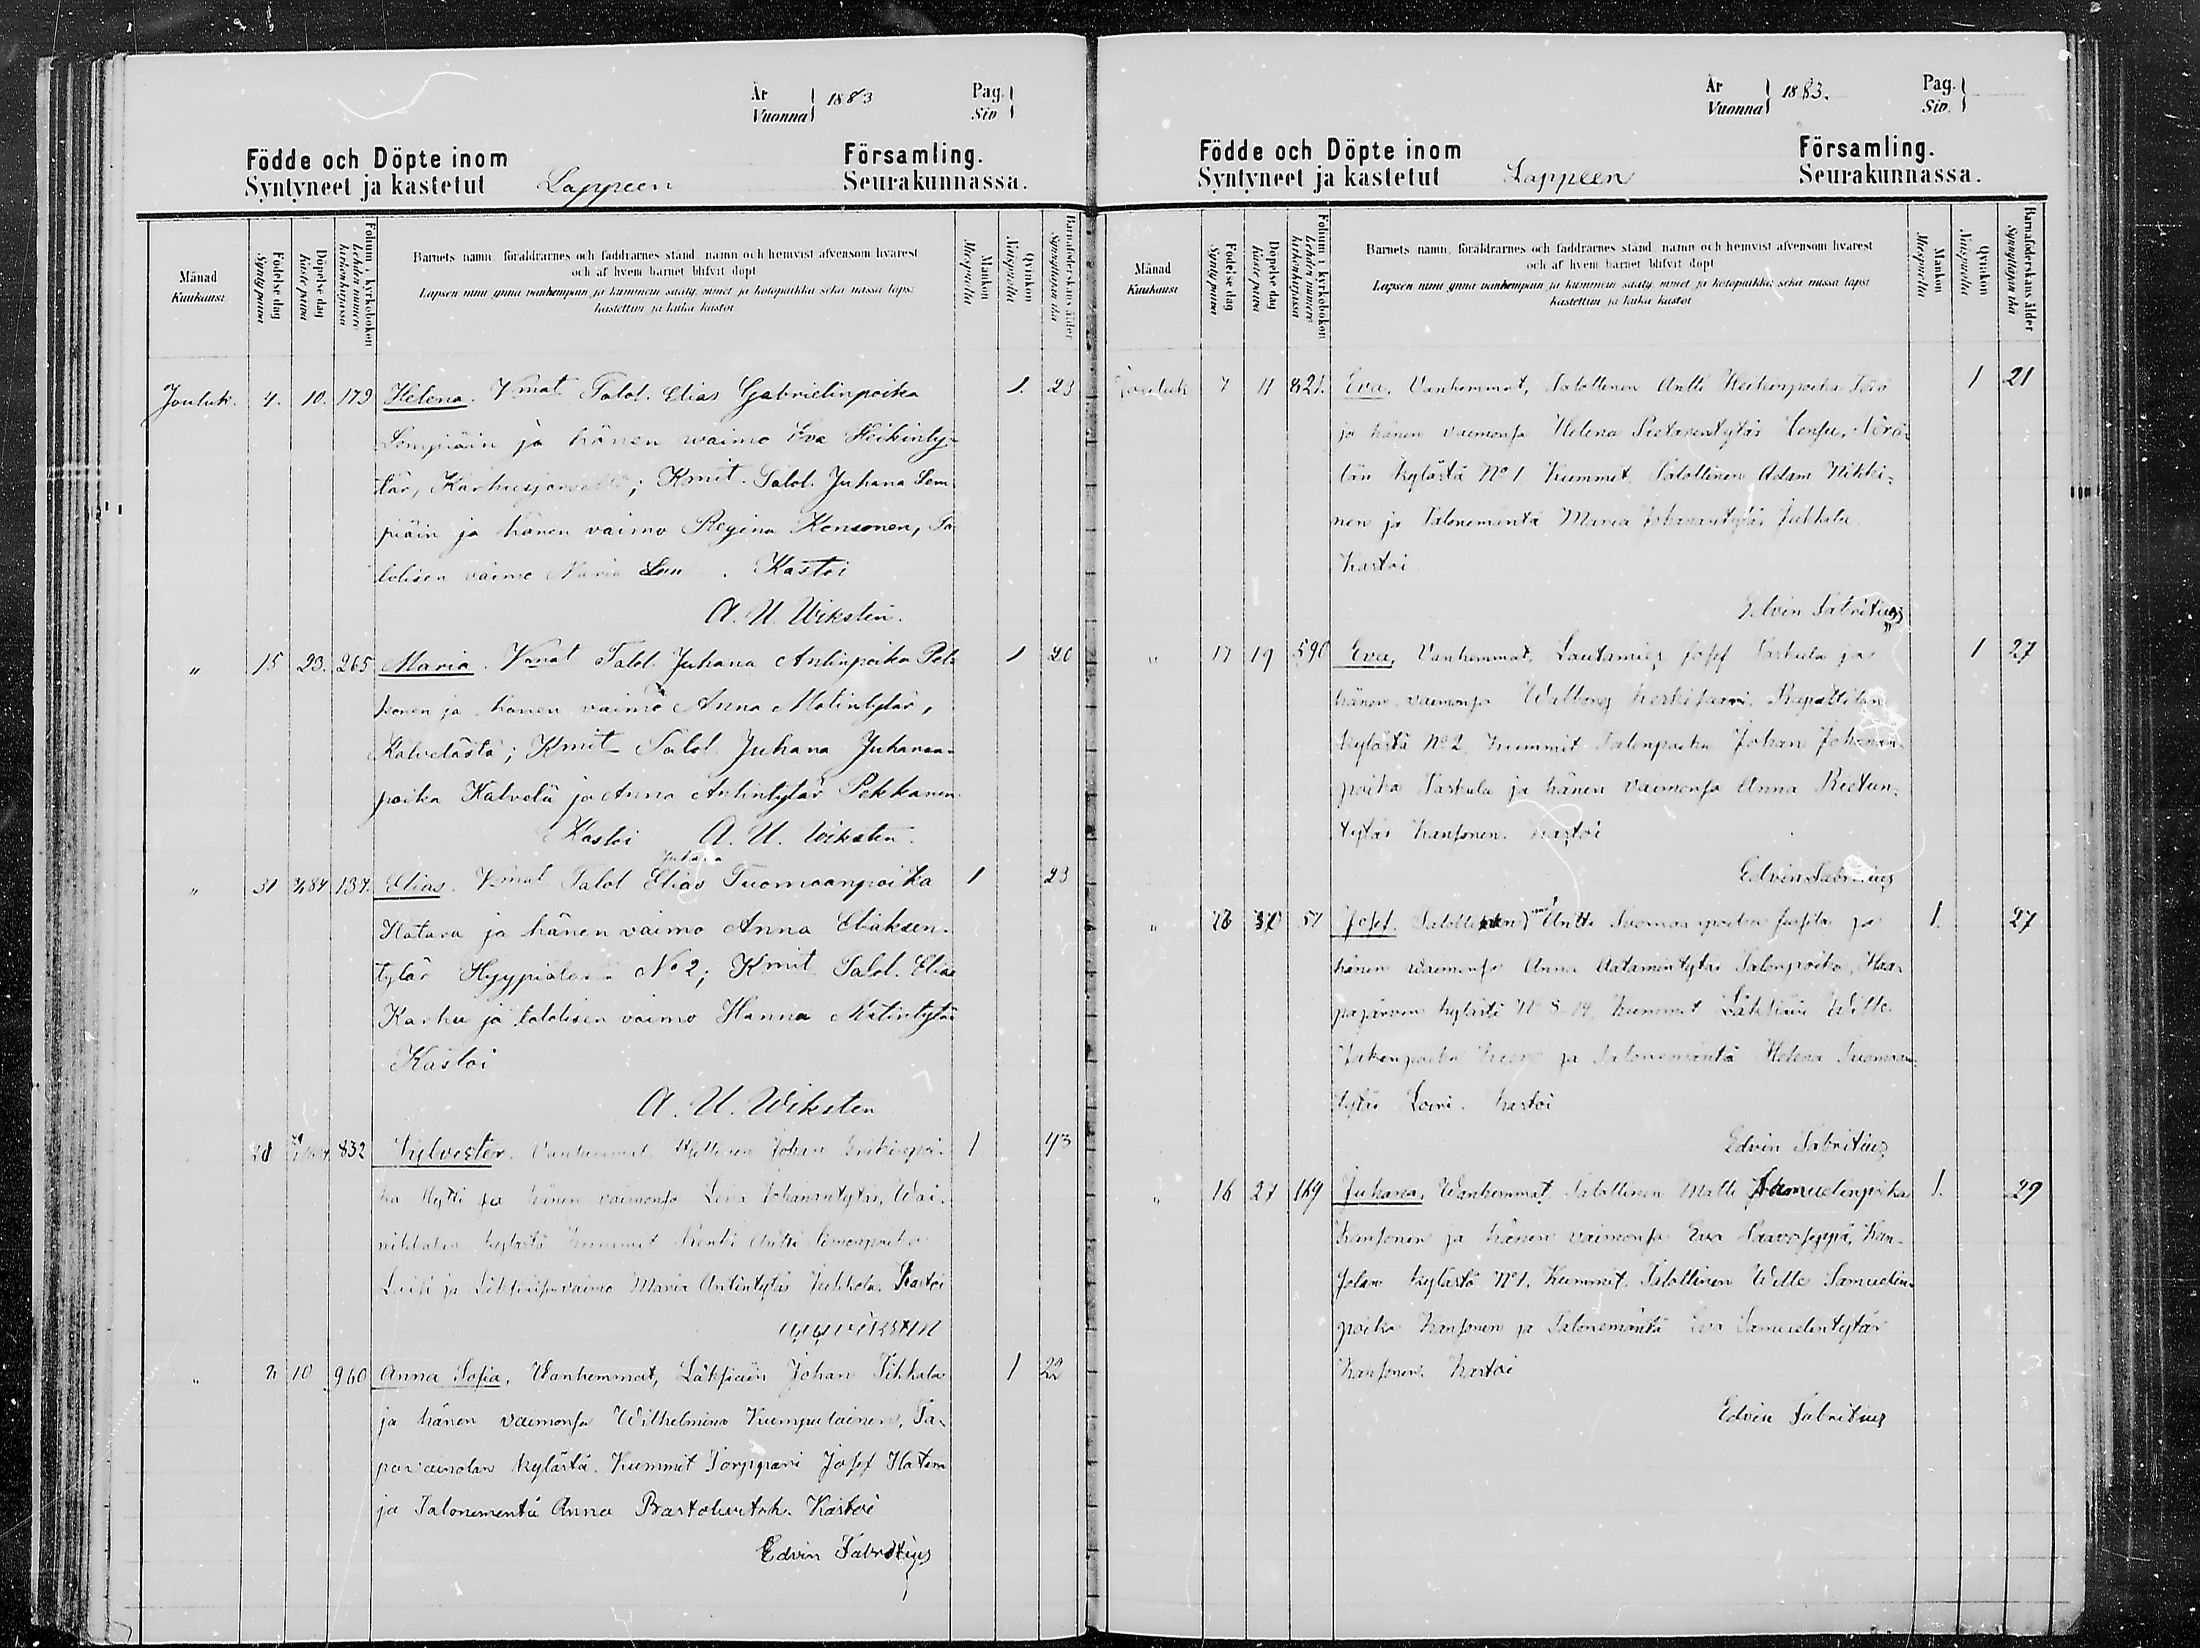 År Vuonna 1883 Pag. Siv
Födde och Döpte inom Församling.
Syntyneet ja kastetut Lappeen Seurakunnassa.
Månad Kuukausi
Födelse dag Synty päivä
Döpelse dag Kaste päivä
Folium i kyrkoboken Lehden numero kirkonkirjassa
Barnets namn, föräldrarnes och faddrarnes stånd, namn och hemvist äfvensom hvarest
och af hvem barnet blifvit döpt
Lapsen nimi ynnä vanhempain ja kummein sääty, nimet ja kotopaikka sekä missä lapsi
kastettiin ja kuka kastoi
Mankön Miespuolta
Qvinkön Naispuolta
Barnaföderskans ålder Synnyttäjän ikä
Jouluk. 4. 10. 179 Helena. Vmat Talol. Elias Gabrielinpoika 1. 23
Lempiäin ja hänen waimo Eva Heikinty-
tär, Karhusjärveltä; Kmit. Talol. Juhana Lem
piäin ja hänen vaimo Regina Konsonen, Ta
lolisen vaimo Maria. Kastoi
A. U. Wikstén.
" 15 23. 265 Maria. Vmat Talol. Juhana Antinpoika Pek 1 20
konen ja hänen vaimo Anna Matintytär,
Kalvelästä; Kmit Talol. Juhana Juhanan-
poika Kalvelä ja Anna Antintytär Pekkanen
Kastoi A. U. Wikstén.
Juhana
" 31 137. Elias. Vmat Talol Elias Tuomaanpoika 1 23
Hatara ja hänen vaimo Anna Eliaksen-
tytär No 2; Kmit Talol. Elias
Karhu ja talolisen vaimo Hanna Matintytär
Kastoi
A. U. Wiksten
28 832 Sylvester. Vanhemmat Johan 1 43
ka Hytti ja hänen vaimonsa Johanantytär, Wai-
nikkalan kylästä Kummit Renki Antti Simonpoika
ja vaimo Maria Antintytär Jukkola. Kastoi
A U Wikstén
" 2 10 960 Anna Sofia, Vanhemmat, Läksiäin Johan Tihkala 1 22
ja hänen vaimonsa Wilhelmina Kumpulainen, Ta-
pavainolan kylästä. Kummit Torppari Josef Hatara
ja Talonemäntä Anna. Kastoi
Edvin Fabritius
År Vuonna 1883. Pag. Siv.
Födde och Döpte inom Församling.
Syntyneet ja kastetut Lappeen Seurakunnassa.
Månad Kuukausi
Födelse dag Synty päivä
Döpelse dag Kaste päivä
Folium i kyrkoboken Lehden numero kirkonkirjassa
Barnets namn, föräldrarnes och faddrarnes stånd, namn och hemvist äfvensom hvarest
och af hvem barnet blifvit döpt
Lapsen nimi ynnä vanhempain ja kummein sääty, nimet ja kotopaikka sekä missä lapsi
kastettiin ja kuka kastoi
Mankön Miespuolta
Qvinkön Naispuolta
Barnaföderskans ålder Synnyttäjän ikä
Jouluk 7 11 821. Eva. Vanhemmat, Talollinen Antti Heikinpoika 1 21
ja hänen vaimonsa Helena
län kylästä No 1 Kummit Talollinen Adam Nikki-
nen ja Talonemäntä Maria Johanantytär Jukkala
Kastoi
Edvin Fabritius
" 17 19 590 Eva, Vanhemmat, Lautamies Josef Taskula ja 1 27
hänen vaimonsa Walborg
kylästä No 2, Kummit Talonpoika Johan Johanin-
poika Taskula ja hänen vaimonsa Anna
tytär Kansonen. Kastoi
Edvin Fabritius
" 51 Josef. Antti Tuomaanpoika ja 1. 27
hänen vaimonsa Anna Aatamintytär Talonpoika, Haa-
pajärven kylästä No Kummit Läksiäin Wille
ja Talonemäntä Helena Tuomaan
tytär. Kastoi
Edvin Fabritius
" 16 27 169 Juhana, Wanhemmat, Talollinen Matti Samuelinpoika 1. 29
Kansonen ja hänen vaimonsa Eva Kan-
solan kylästä No 1. Kummit. Talollinen Wille Samuelin-
poika Kansonen ja Talonemäntä Eva Samuelintytär
Kansonen. Kastoi
Edvin Fabritius